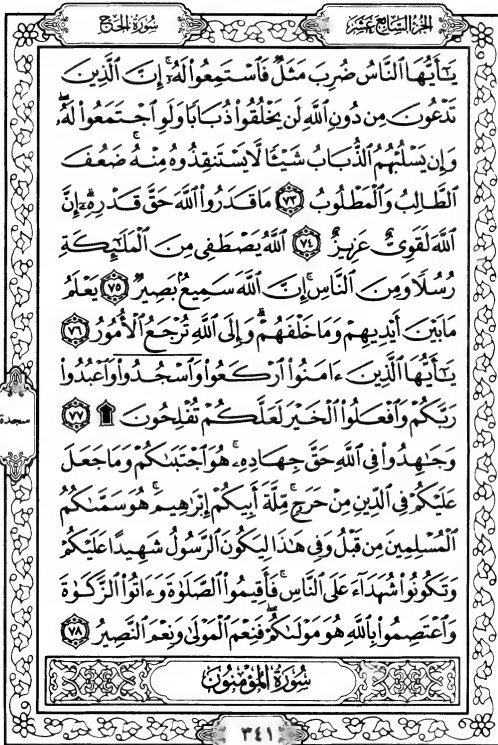 سُورَةُ الْحَجّ
الجُزْءُ السَّابِعَ عَشَرَ
يَٰٓأَيُّهَا ٱلنَّاسُ ضُرِبَ مَثَلٌ فَٱسْتَمِعُوا۟ لَهُۥٓ ۚ إِنَّ ٱلَّذِينَ
تَدْعُونَ مِن دُونِ ٱللَّهِ لَن يَخْلُقُوا۟ ذُبَابًا وَلَوِ ٱجْتَمَعُوا۟ لَهُۥ ۖ
وَإِن يَسْلُبْهُمُ ٱلذُّبَابُ شَيْـًٔا لَّا يَسْتَنقِذُوهُ مِنْهُ ۚ ضَعُفَ
ٱلطَّالِبُ وَٱلْمَطْلُوبُ ٧٣ مَا قَدَرُوا۟ ٱللَّهَ حَقَّ قَدْرِهِۦٓ ۗ إِنَّ
ٱللَّهَ لَقَوِىٌّ عَزِيزٌ ٧٤ ٱللَّهُ يَصْطَفِى مِنَ ٱلْمَلَٰٓئِكَةِ
رُسُلًا وَمِنَ ٱلنَّاسِ ۚ إِنَّ ٱللَّهَ سَمِيعٌۢ بَصِيرٌ ٧٥ يَعْلَمُ
مَا بَيْنَ أَيْدِيهِمْ وَمَا خَلْفَهُمْ ۗ وَإِلَى ٱللَّهِ تُرْجَعُ ٱلْأُمُورُ ٧٦
يَٰٓأَيُّهَا ٱلَّذِينَ ءَامَنُوا۟ ٱرْكَعُوا۟ وَٱسْجُدُوا۟ وَٱعْبُدُوا۟
رَبَّكُمْ وَٱفْعَلُوا۟ ٱلْخَيْرَ لَعَلَّكُمْ تُفْلِحُونَ ۩ ٧٧
سجدة
وَجَٰهِدُوا۟ فِى ٱللَّهِ حَقَّ جِهَادِهِۦ ۚ هُوَ ٱجْتَبَىٰكُمْ وَمَا جَعَلَ
عَلَيْكُمْ فِى ٱلدِّينِ مِنْ حَرَجٍ ۚ مِّلَّةَ أَبِيكُمْ إِبْرَٰهِيمَ ۚ هُوَ سَمَّىٰكُمُ
ٱلْمُسْلِمِينَ مِن قَبْلُ وَفِى هَٰذَا لِيَكُونَ ٱلرَّسُولُ شَهِيدًا عَلَيْكُمْ
وَتَكُونُوا۟ شُهَدَآءَ عَلَى ٱلنَّاسِ ۚ فَأَقِيمُوا۟ ٱلصَّلَوٰةَ وَءَاتُوا۟ ٱلزَّكَوٰةَ
وَٱعْتَصِمُوا۟ بِٱللَّهِ هُوَ مَوْلَىٰكُمْ ۖ فَنِعْمَ ٱلْمَوْلَىٰ وَنِعْمَ ٱلنَّصِيرُ ٧٨
سُورَةُ الْمُؤْمِنُونَ
٣٤١